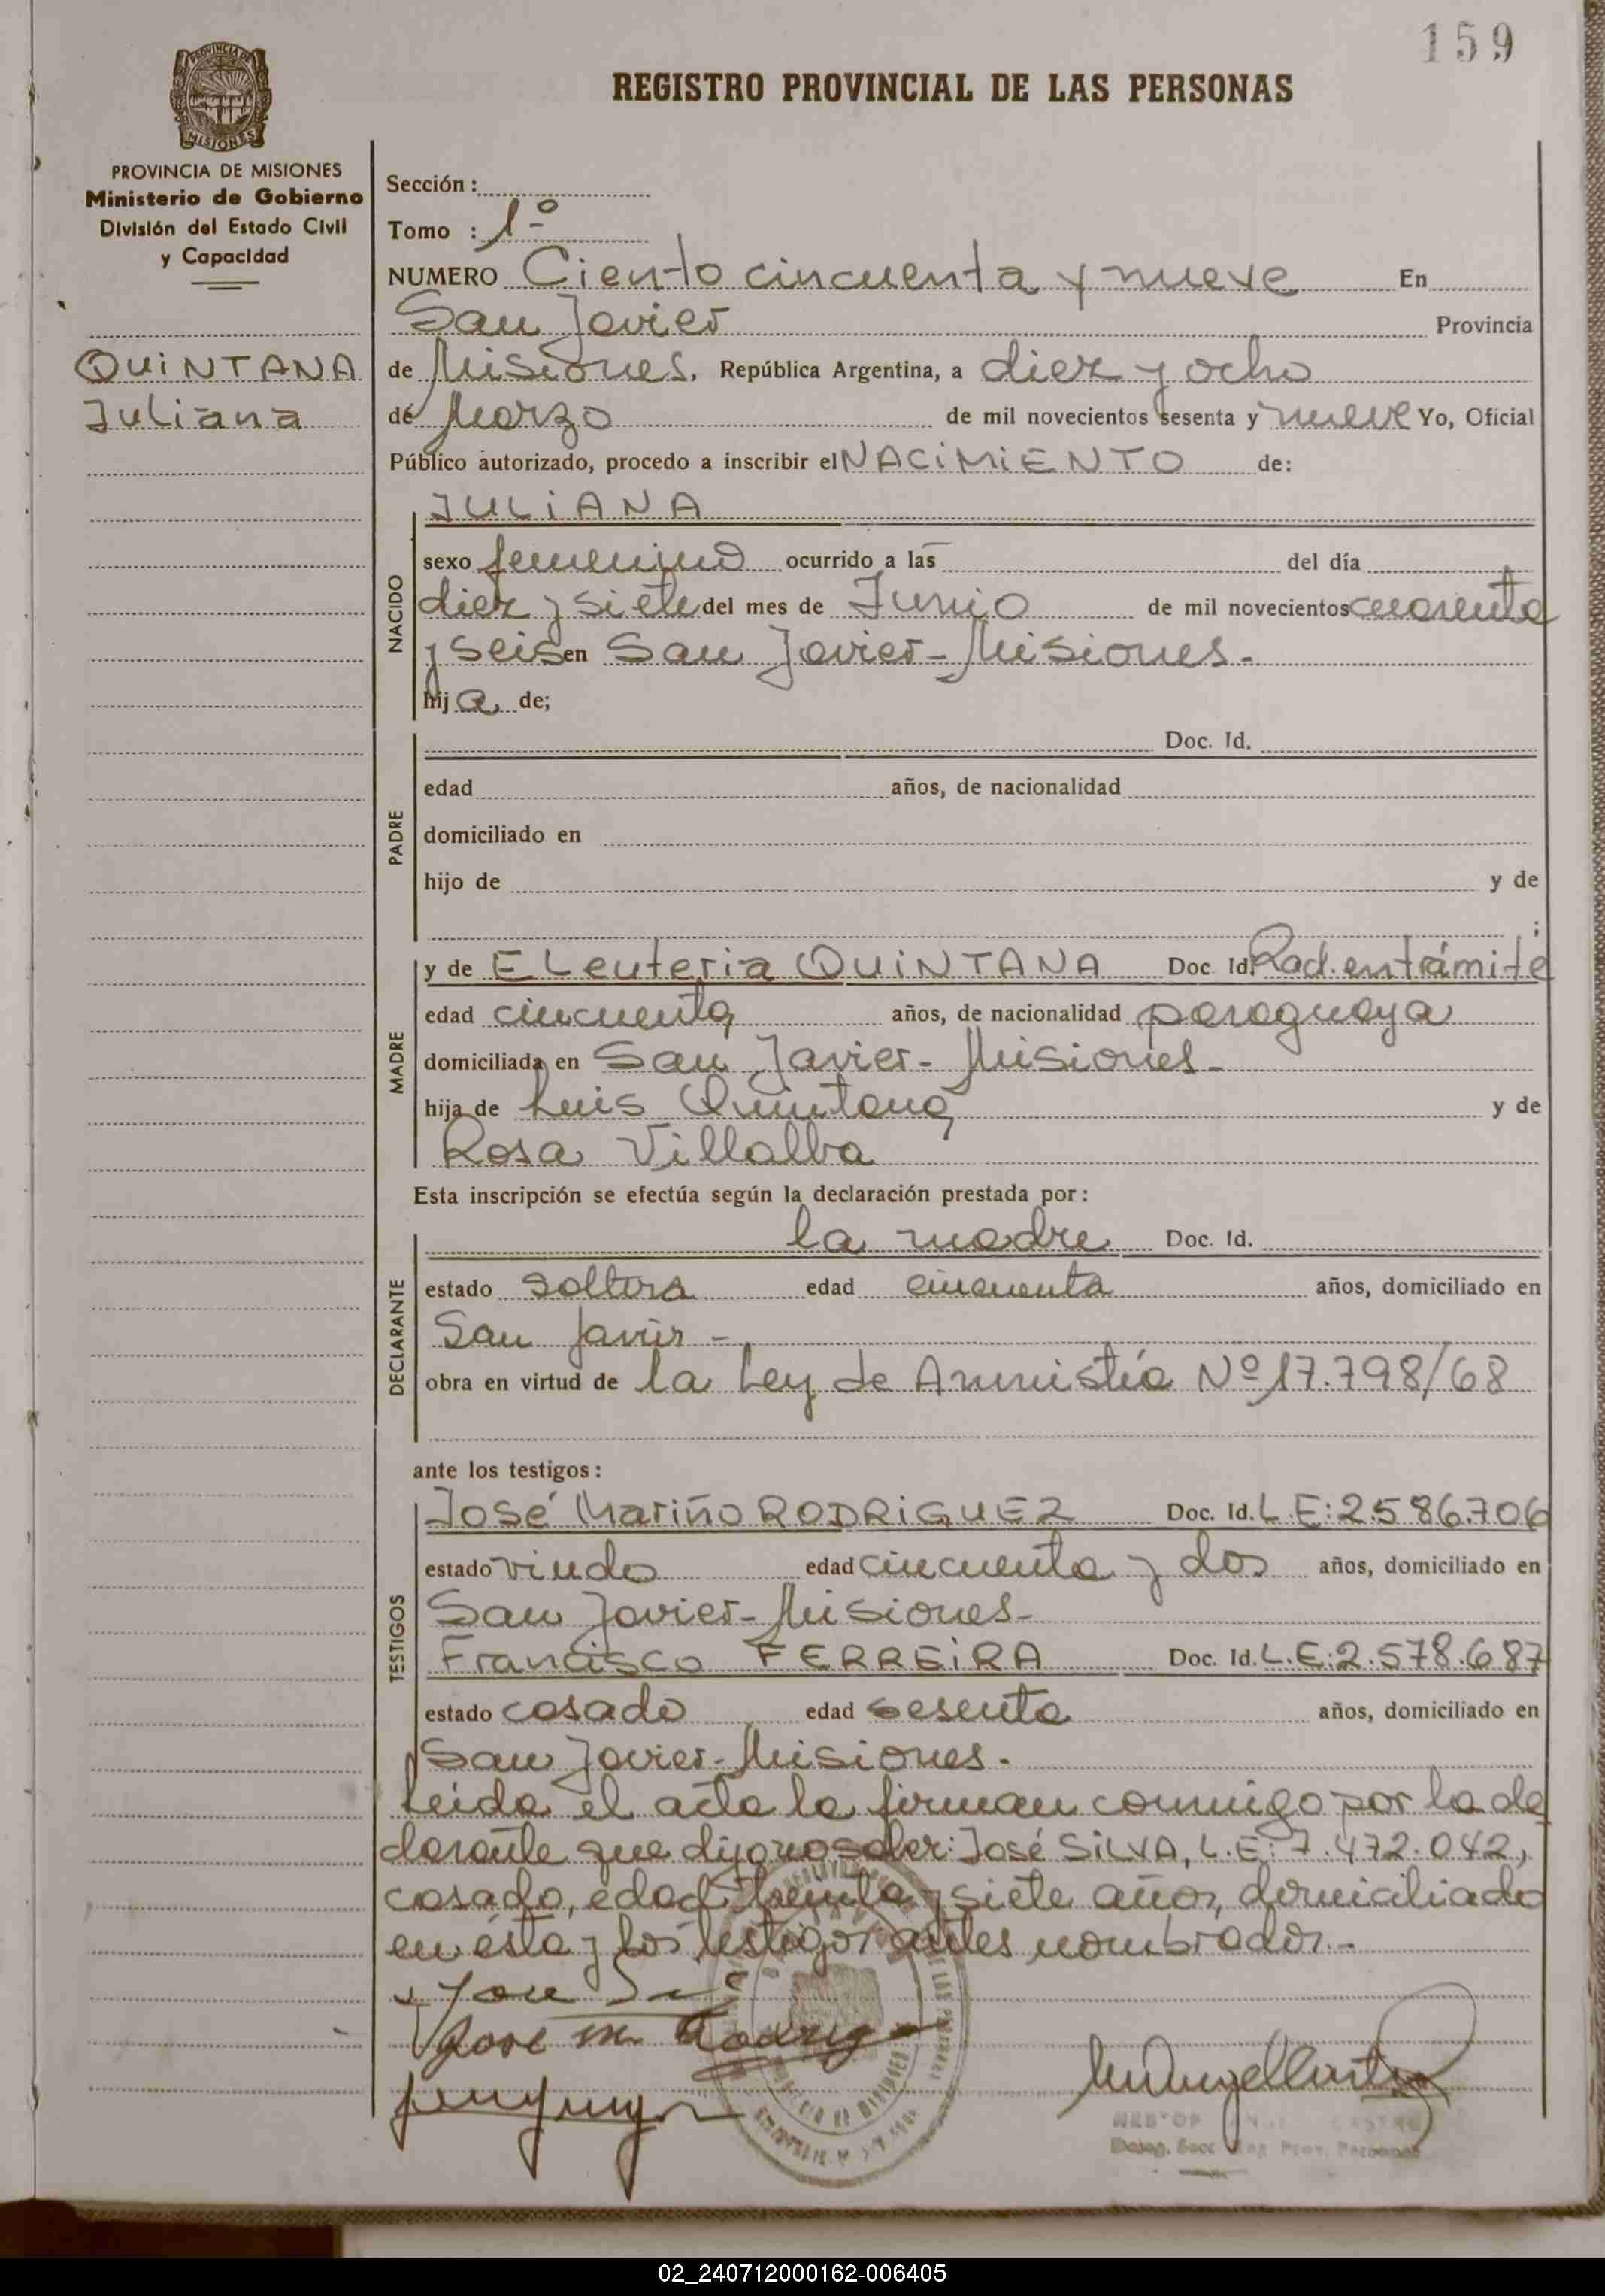 159
REGISTRO PROVINCIAL DE LAS PERSONAS
PROVINCIA DE MISIONES
Ministerio de Gobierno
División del Estado Civil
y Capacidad
QUINTANA
Juliana
Sección :
Tomo : 1º
NUMERO Ciento cincuenta y nueve En
San Javier Provincia
de Misiones, República Argentina, a diez y ocho
de Marzo de mil novecientos sesenta y nueve Yo, Oficial
Público autorizado, procedo a inscribir el NACIMIENTO de:
NACIDO
JULIANA
sexo femenino ocurrido a las del día
diez y siete del mes de Junio de mil novecientos cuarenta
y seis en San Javier - Misiones.-
hija de;
PADRE
Doc. Id.
edad años, de nacionalidad
domiciliado en
hijo de y de
;
MADRE
y de ELeuteria QUINTANA Doc Id. Rad. en trámite
edad cincuenta años, de nacionalidad paraguaya
domiciliada en San Javier - Misiones -
hija de Luis Quintana y de
Rosa Villalba
Esta inscripción se efectúa según la declaración prestada por:
DECLARANTE
la madre Doc. Id.
estado soltera edad cincuenta años, domiciliado en
San Javier -
obra en virtud de la Ley de Amnistía Nº 17.798/68
ante los testigos:
TESTIGOS
José Mariño RODRIGUEZ Doc. Id. L.E:2.586.706
estado viudo edad cincuenta y dos años, domiciliado en
San Javier - Misiones -
Francisco FERREIRA Doc. Id. L.E:2.578.687
estado casado edad sesenta años, domiciliado en
San Javier - Misiones.
Leída el acta la firman conmigo por la de
clarante que dijo no saber: José SILVA, L.E: 7.472.042,
casado, edad treinta y siete años, domiciliado
en ésta y los testigos antes nombrados.-
José M. Rodrig
Deleg. Secc Reg Prov. Personas
02_240712000162-006405